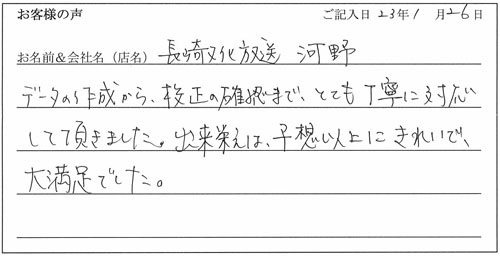 お客様の声 ご記入日 23年1月26日
お名前&会社名(店名) 長崎文化放送 河野
データの作成から、校正の確認まで、とても丁寧に対応
して頂きました。出来栄えは、予想以上にきれいで、
大満足でした。